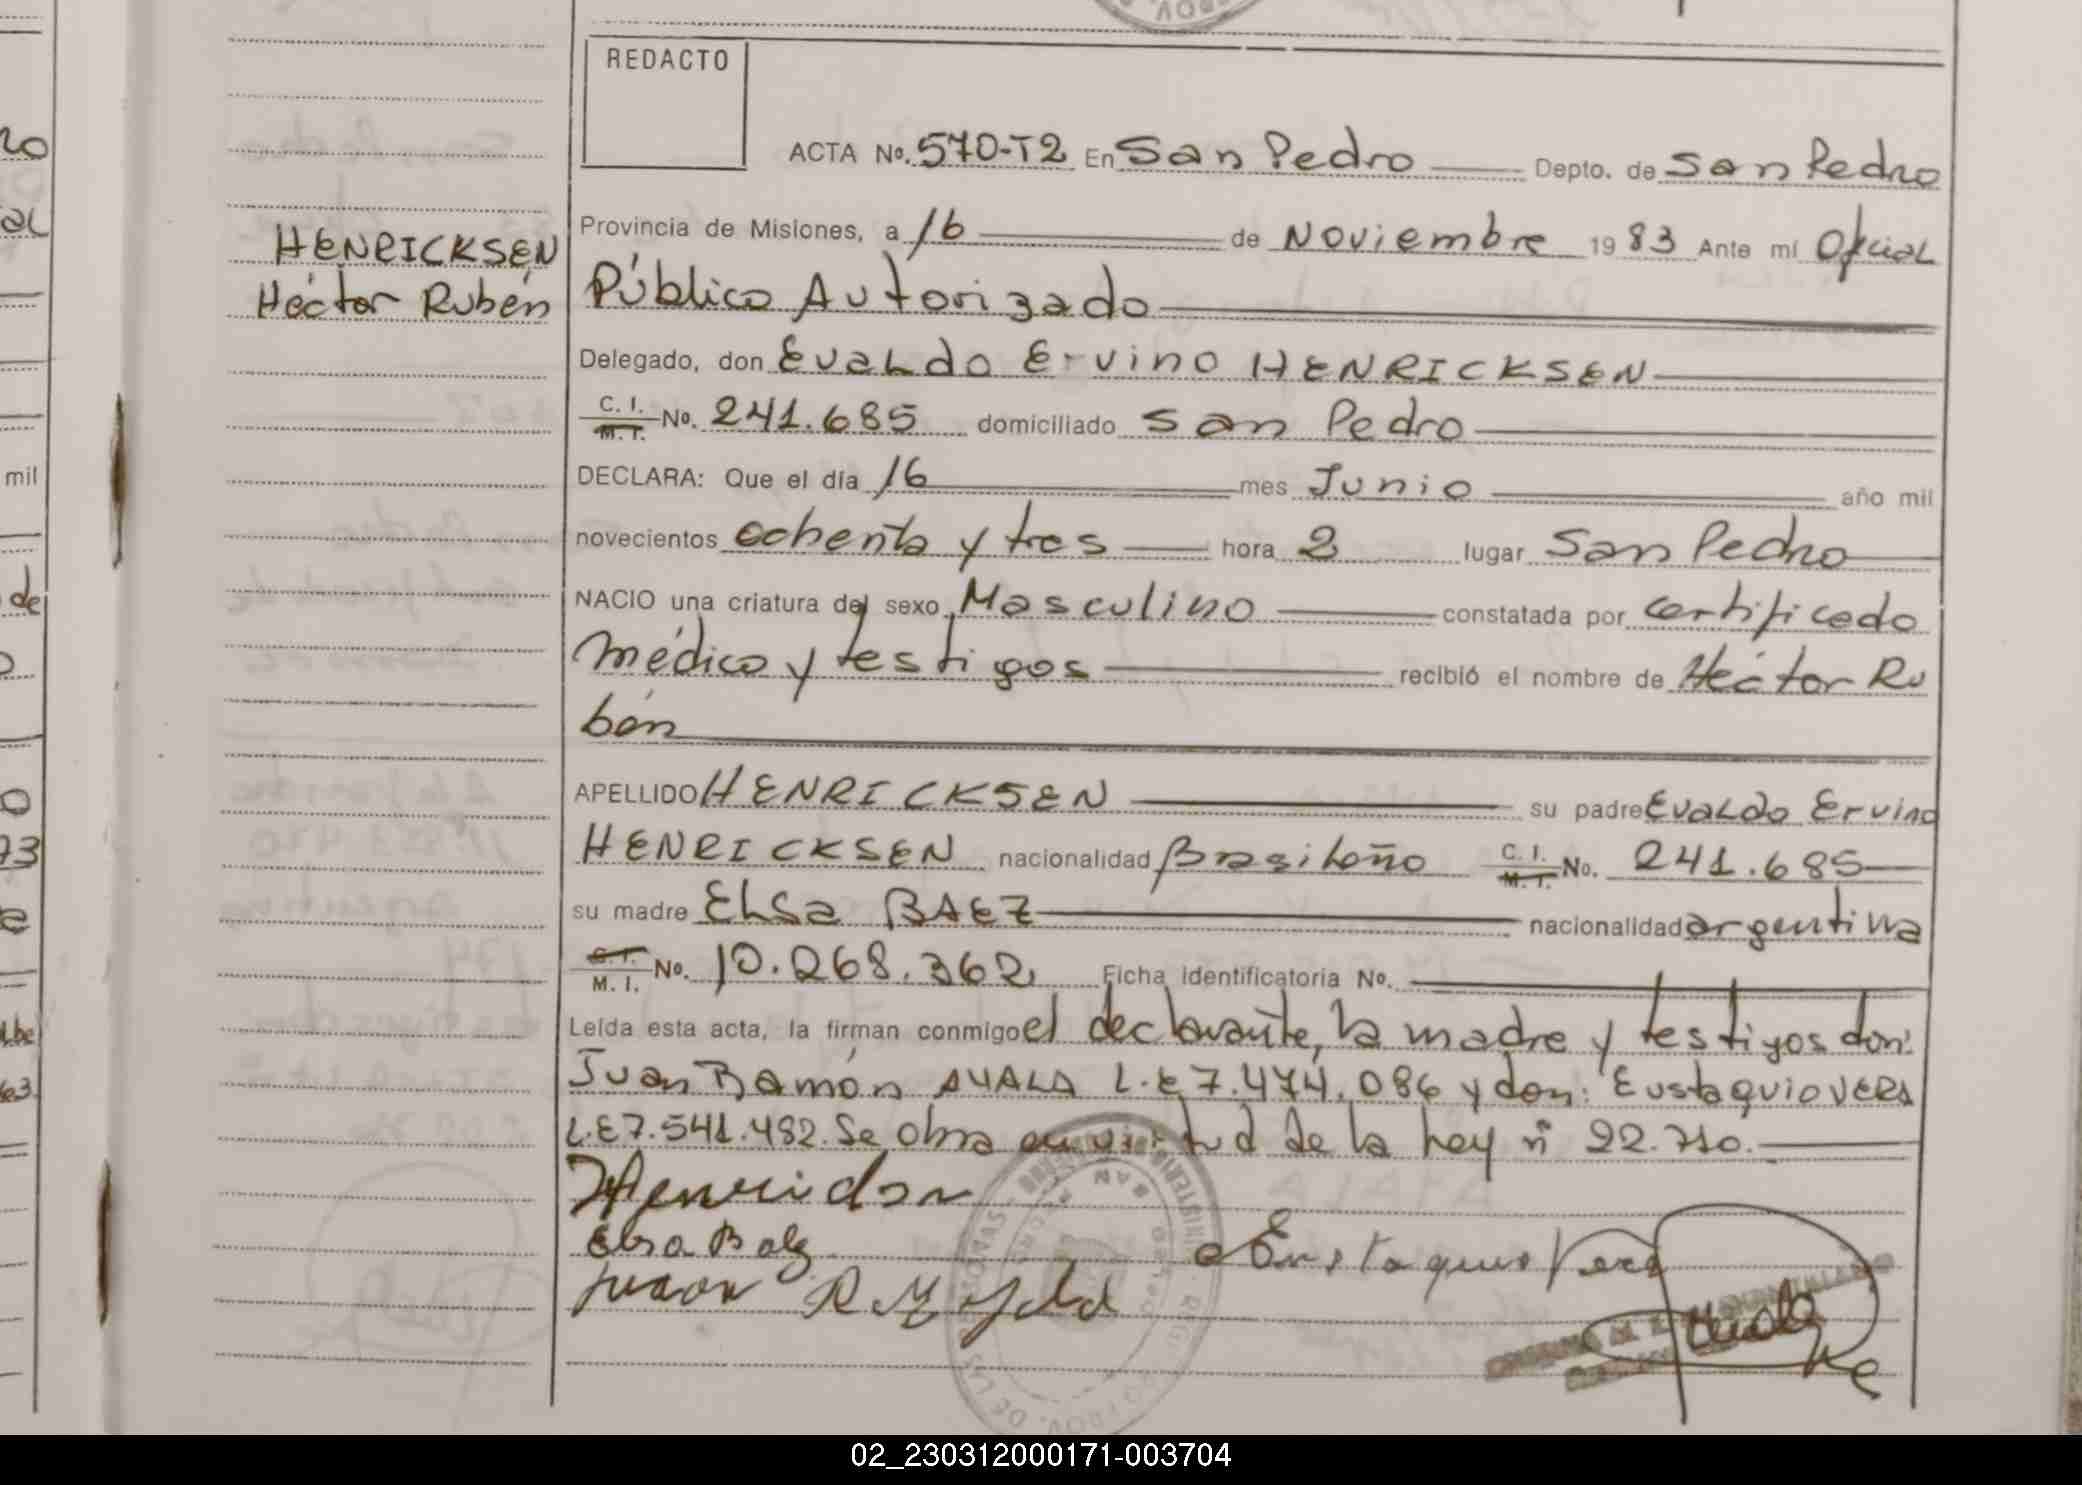 REDACTO
ACTA No. 570-T2 En San Pedro Depto. de San Pedro
Provincia de Misiones, a 16 de Noviembre 1983 Ante mí Oficial
Público Autorizado
HENRICKSEN
Héctor Rubén
Delegado, don Evaldo Ervino HENRICKSEN
C. I. M. I. No. 241.685 domiciliado San Pedro
DECLARA: Que el día 16 mes Junio año mil
novecientos ochenta y tres hora 2 lugar San Pedro
NACIO una criatura del sexo Masculino constatada por certificado
médico y testigos recibió el nombre de Héctor Ru
bén
APELLIDO HENRICKSEN su padre Evaldo Ervino
HENRICKSEN nacionalidad Brasileño C. I. M. I. No. 241.685
su madre Elsa BAEZ nacionalidad argentina
C. I. M. I. No. 10.268.362 Ficha identificatoria No.
Leída esta acta, la firman conmigo el declarante, la madre y testigos don:
Juan Ramón AYALA L.E 7.474.086 y don: Eustaquio VERA
L.E 7.541.482. Se obra en virtud de la ley nº 22.710.
Elsa Baez
Eustaquio Vera
Juan R
02_230312000171-003704